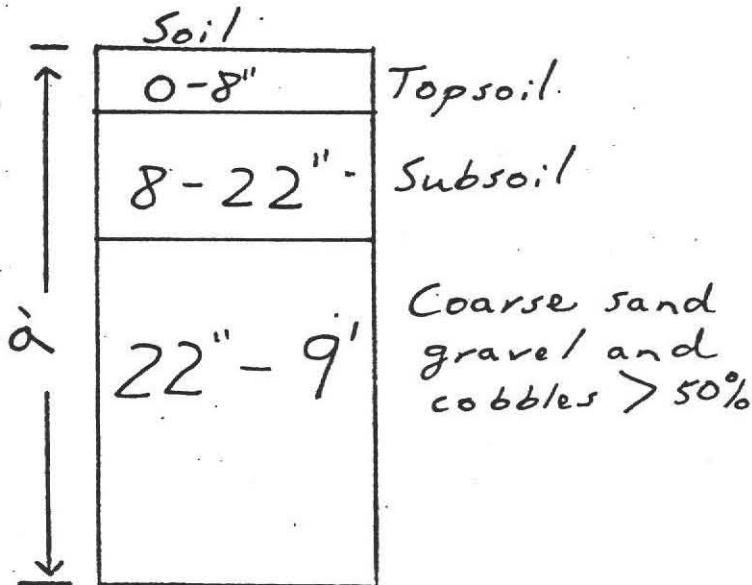 Soil
0-8" Topsoil
8-22" Subsoil
22"-9' Coarse sand
gravel and
cobbles > 50%